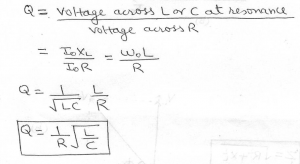 Q = Voltage across L or C at resonance / Voltage across R
= I₀X_L / I₀R = ω₀L / R
Q = 1/√LC L/R
Q = 1/R √L/C